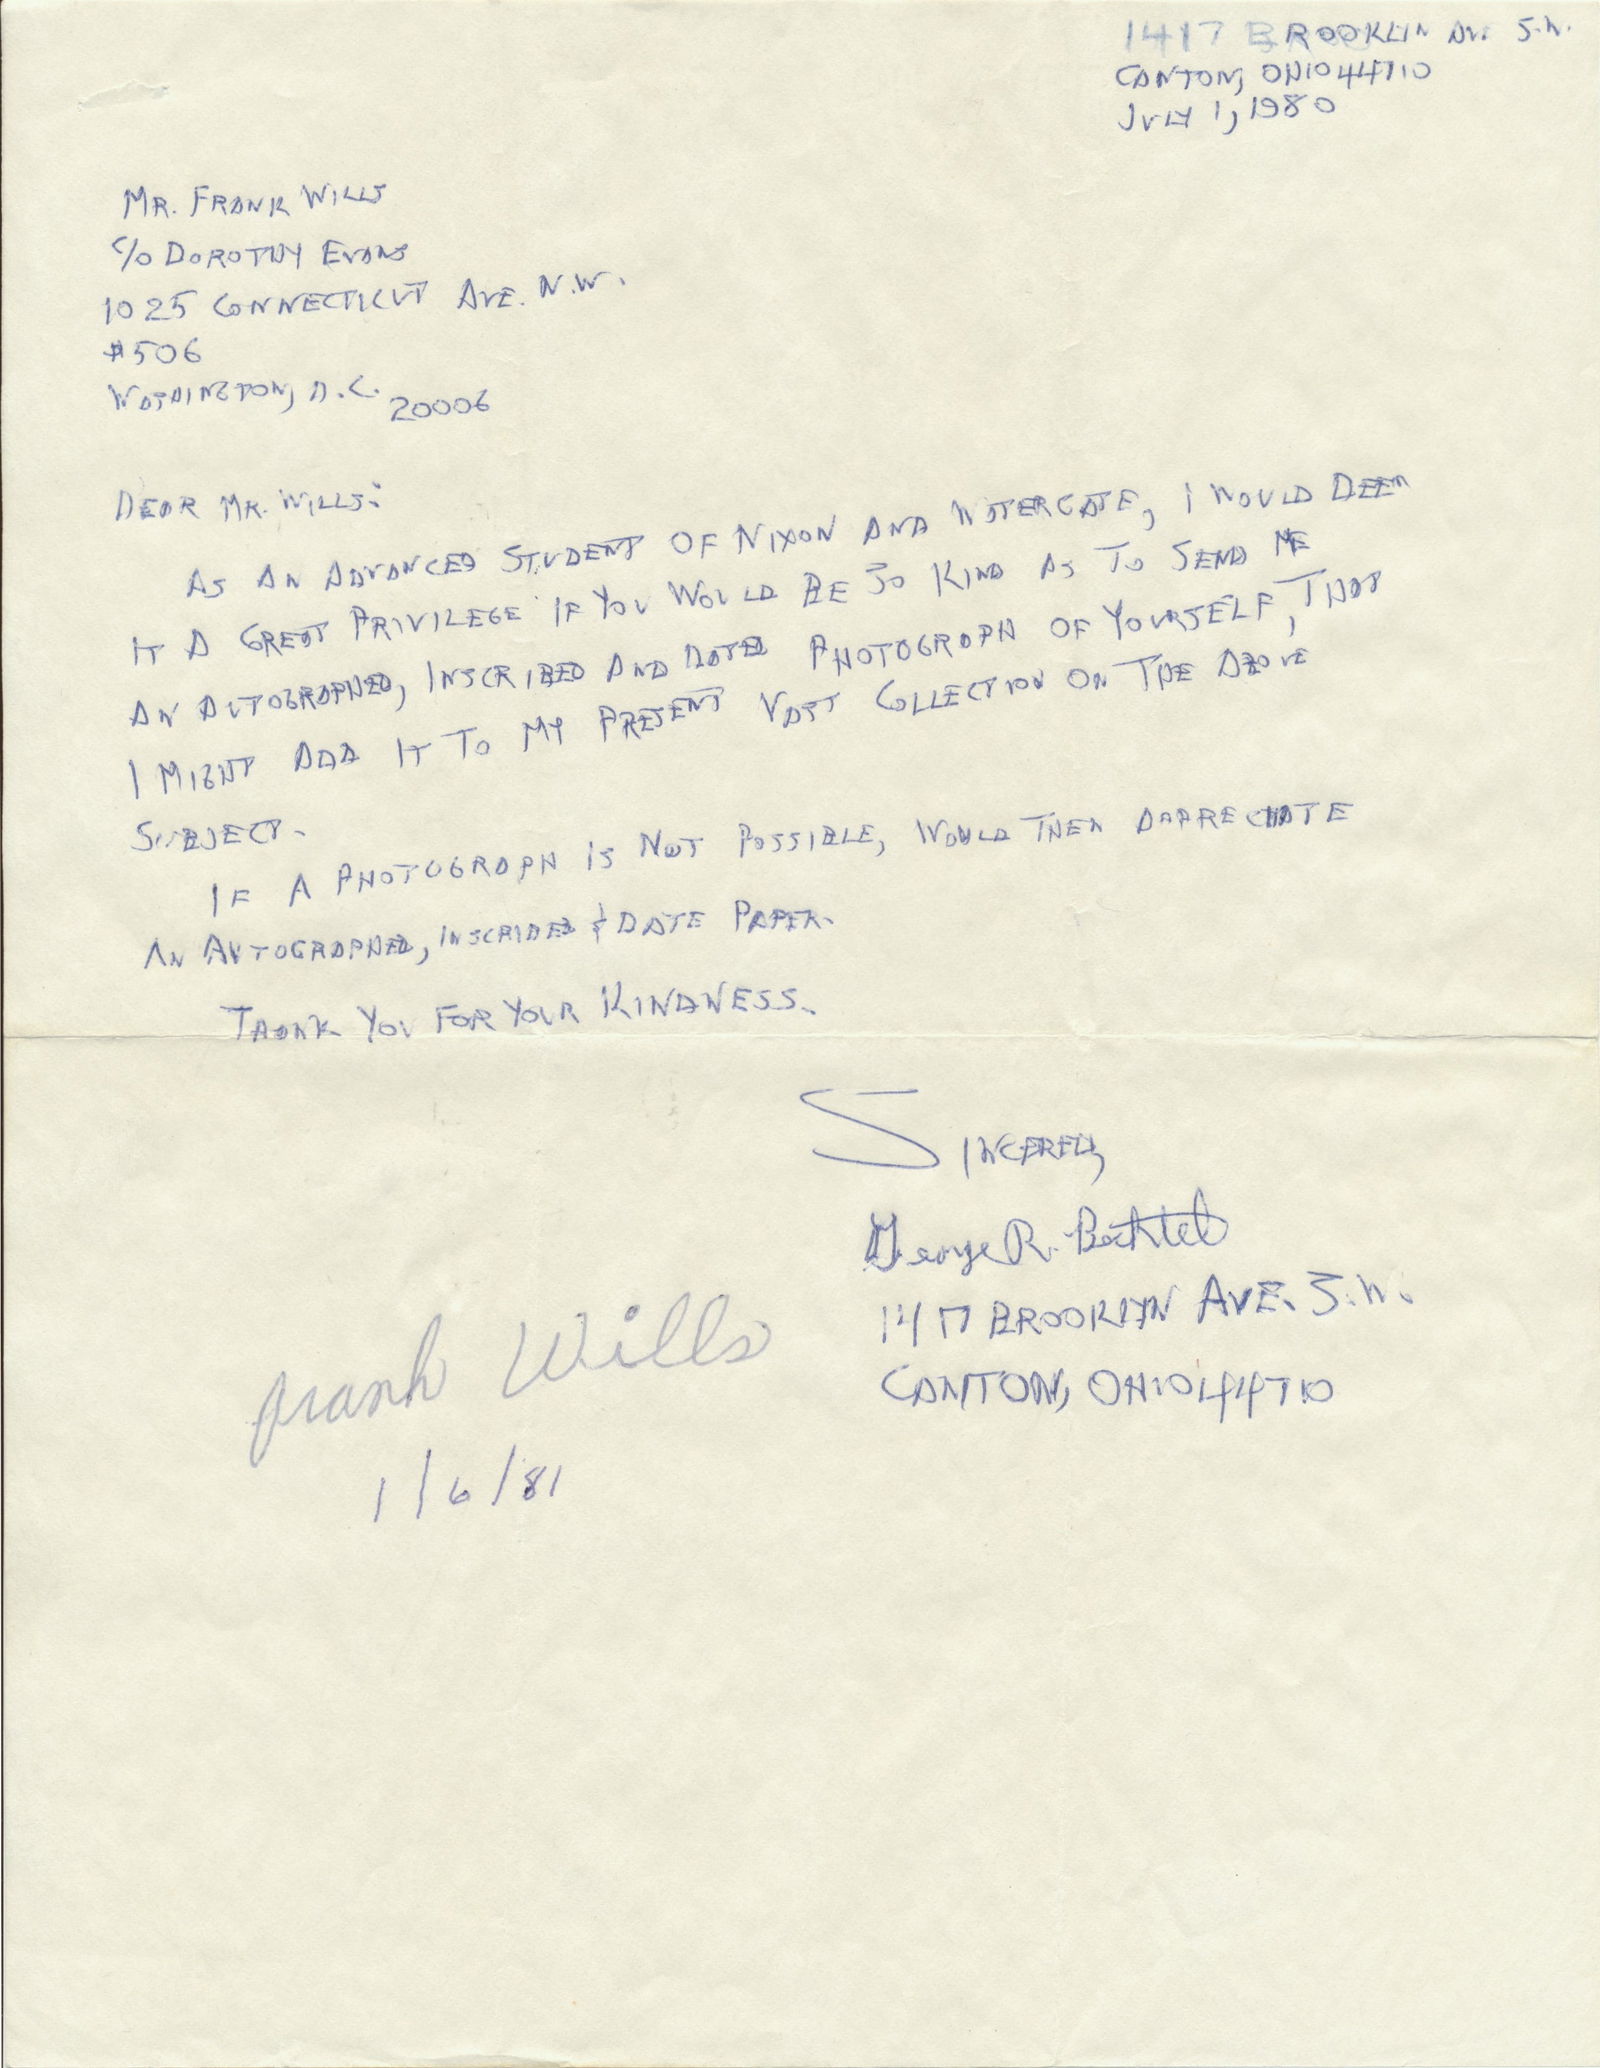 1417 BROOKLYN AVE S.W.
CANTON, OHIO 44710
JULY 1, 1980
MR. FRANK WILLS
C/O DOROTHY EVANS
1025 CONNECTICUT AVE. N.W.
#506
WASHINGTON, D.C. 20006
DEAR MR. WILLS:
AS AN ADVANCED STUDENT OF NIXON AND WATERGATE, I WOULD DEEM
IT A GREAT PRIVILEGE IF YOU WOULD BE SO KIND AS TO SEND ME
AN AUTOGRAPHED, INSCRIBED AND DATED PHOTOGRAPH OF YOURSELF, THAT
I MIGHT ADD IT TO MY PRESENT VAST COLLECTION ON THE ABOVE
SUBJECT.
IF A PHOTOGRAPH IS NOT POSSIBLE, WOULD THEN APPRECIATE
AN AUTOGRAPHED, INSCRIBED & DATE PAPER.
THANK YOU FOR YOUR KINDNESS.
SINCERELY,
George R. Bechtel
1417 BROOKLYN AVE. S.W.
CANTON, OHIO 44710
Frank Wills
1/6/81